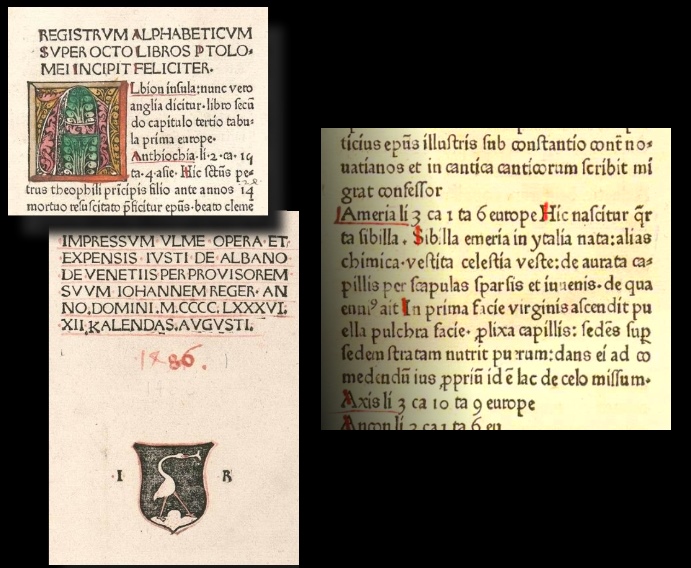 REGISTRVM ALPHABETICVM
SVPER OCTO LIBROS PTOLO-
MEI INCIPIT FELICITER.
ALbion insula: nunc vero
anglia dicitur· libro secũ
do capitulo tertio tabu-
la prima europe·
Anthiochia· li· 2 · ca· 19
ta· 4· asie· Hic sctũs pe-
trus theophili prīcipis filio ante annos 14
mortuo resuscitato pficitur epũs· beato cleme
IMPRESSVM VLME OPERA ET
EXPENSIS IVSTI DE ALBANO
DE VENETIIS PER PROVISOREM
SVVM IOHANNEM REGER· AN
NO, DOMINI· M·CCCC· LXXXVI·
XII· KALENDAS· AVGVSTI·
1486.
I R
ticius epũs illustris sub constantio contr̄ no-
uatianos et in cantica canticorum scribit mi
grat confessor
Ameria li 3 ca 1 ta 6 europe Hic nascitur q̄r
ta sibilla · Sibilla emeria in ytalia nata: alias
chimica· vestita celestia veste: de aurata ca-
pillis per scapulas sparsis et iuuenis· de qua
enniꝰ ait In prima facie virginis ascendit pu
ella pulchra facie· plixa capillis: sedēs sup
sedem stratam nutrit puerum: dans ei ad co
medendũ ius ppriũ id ē lac de celo missum·
Axis li 3 ca 10 ta 9 europe
Ancon li 3 ca 1 ta 6 eu